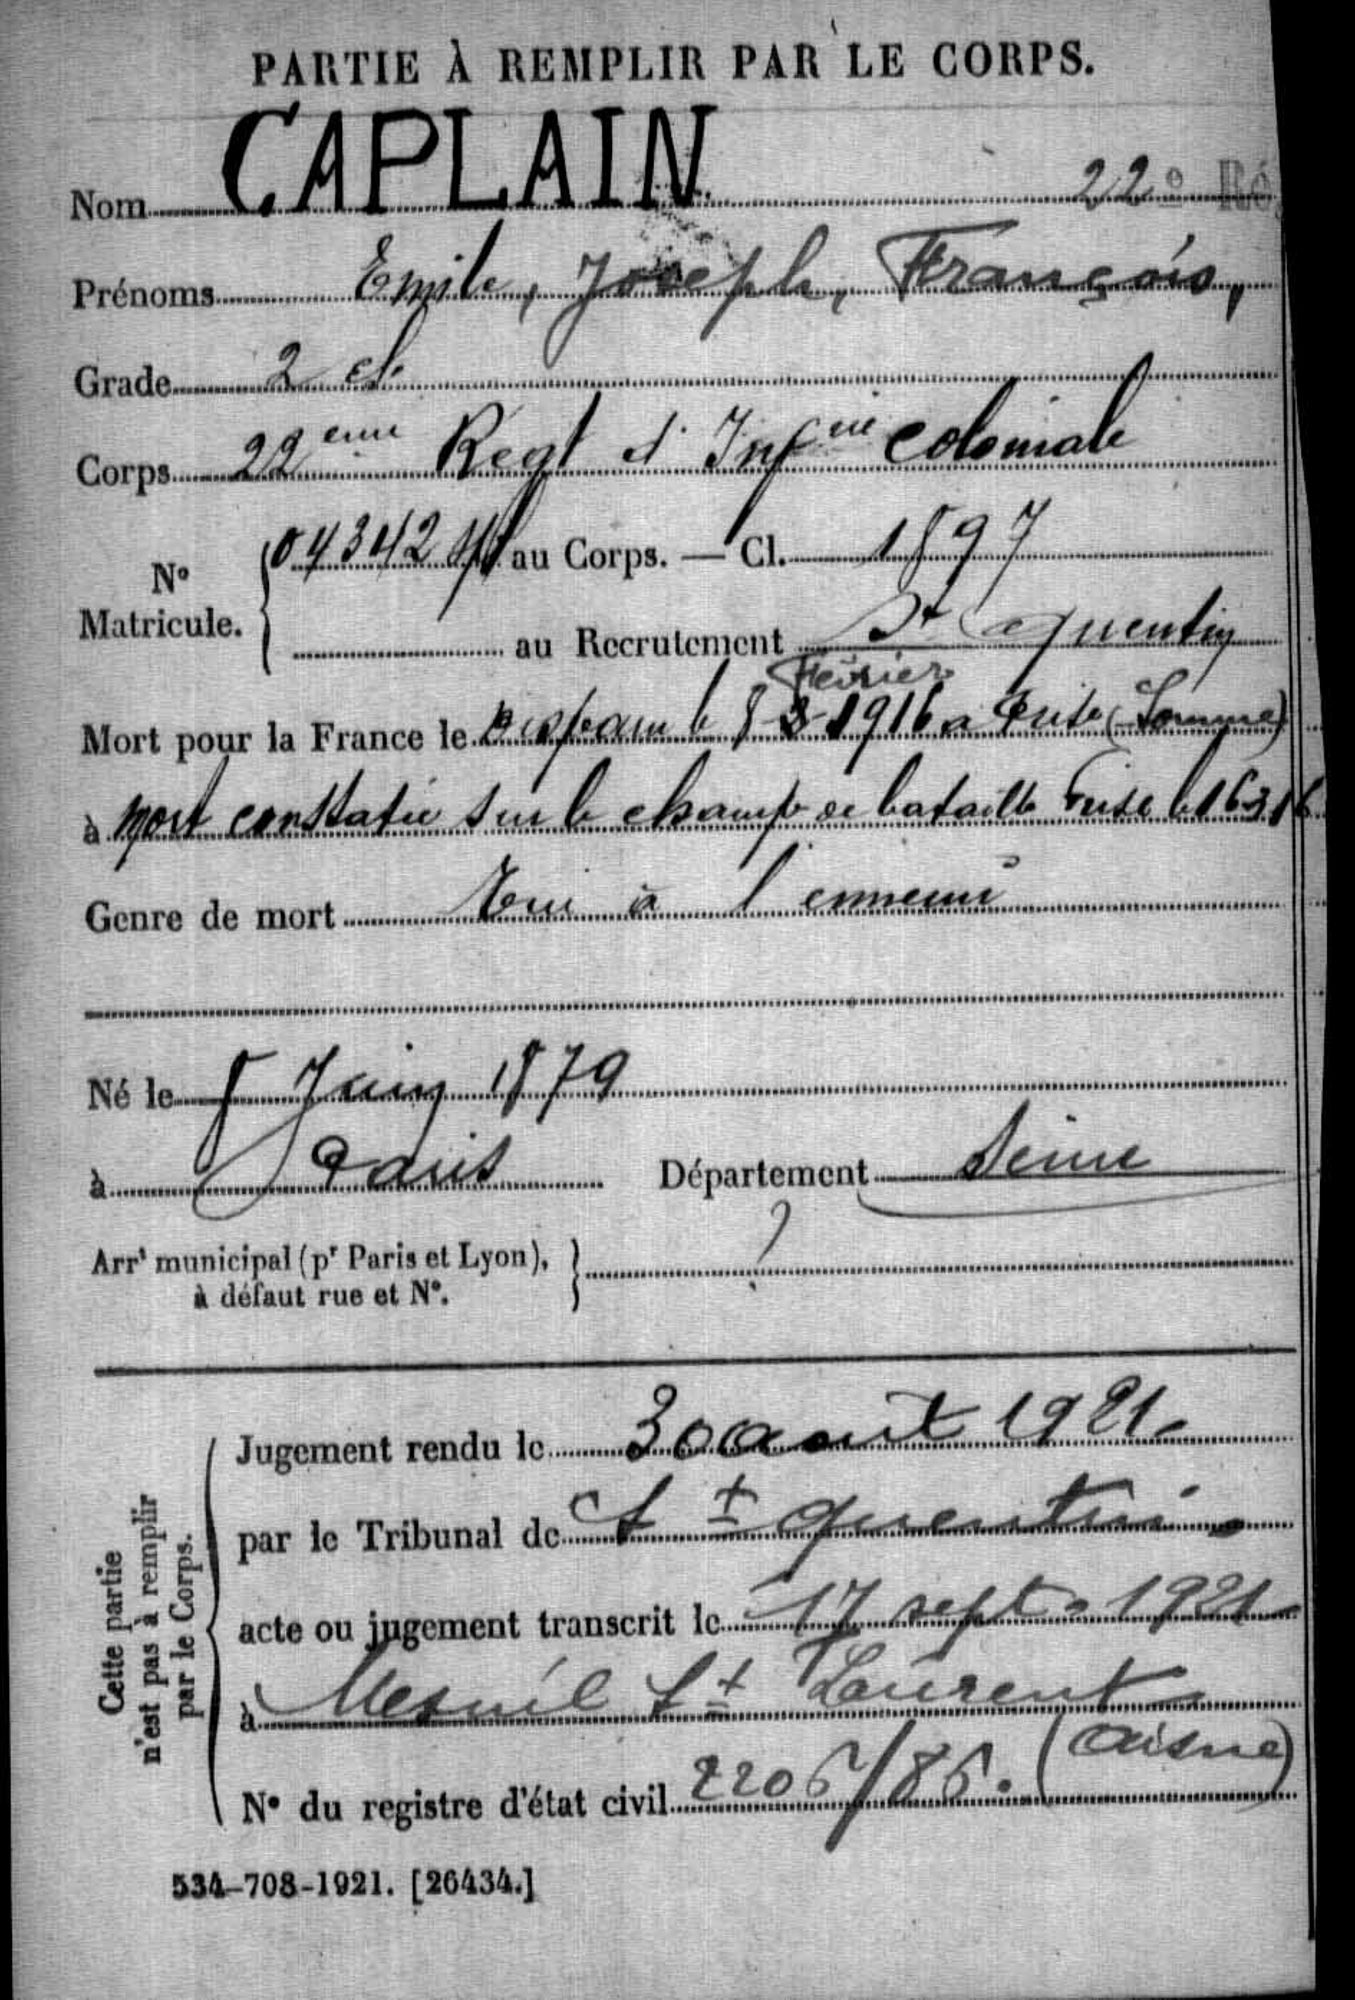 PARTIE À REMPLIR PAR LE CORPS.
Nom CAPLAIN 22e Ré
Prénoms Emile, Joseph, François,
Grade 2 cl.
Corps 22eme Regt d'Infrie Coloniale
No Matricule. 04342 au Corps. — Cl. 1897
au Recrutement St Quentin
Février
Mort pour la France le disparu le 8-3-1916 a Frise (Somme)
à mort constatée sur le champ de bataille Frise le 16.3.16
Genre de mort Tué à l'ennemi
Né le 8 Juin 1879
à Paris Département Seine
Arrt municipal (pr Paris et Lyon), ?
à défaut rue et No.
Cette partie
n'est pas à remplir
par le Corps.
Jugement rendu le 30 aout 1921.
par le Tribunal de St Quentin.
acte ou jugement transcrit le 17 sept. 1921
à Mesnil St Laurent
(Aisne)
No du registre d'état civil 2205/85.
534-708-1921. [26434.]